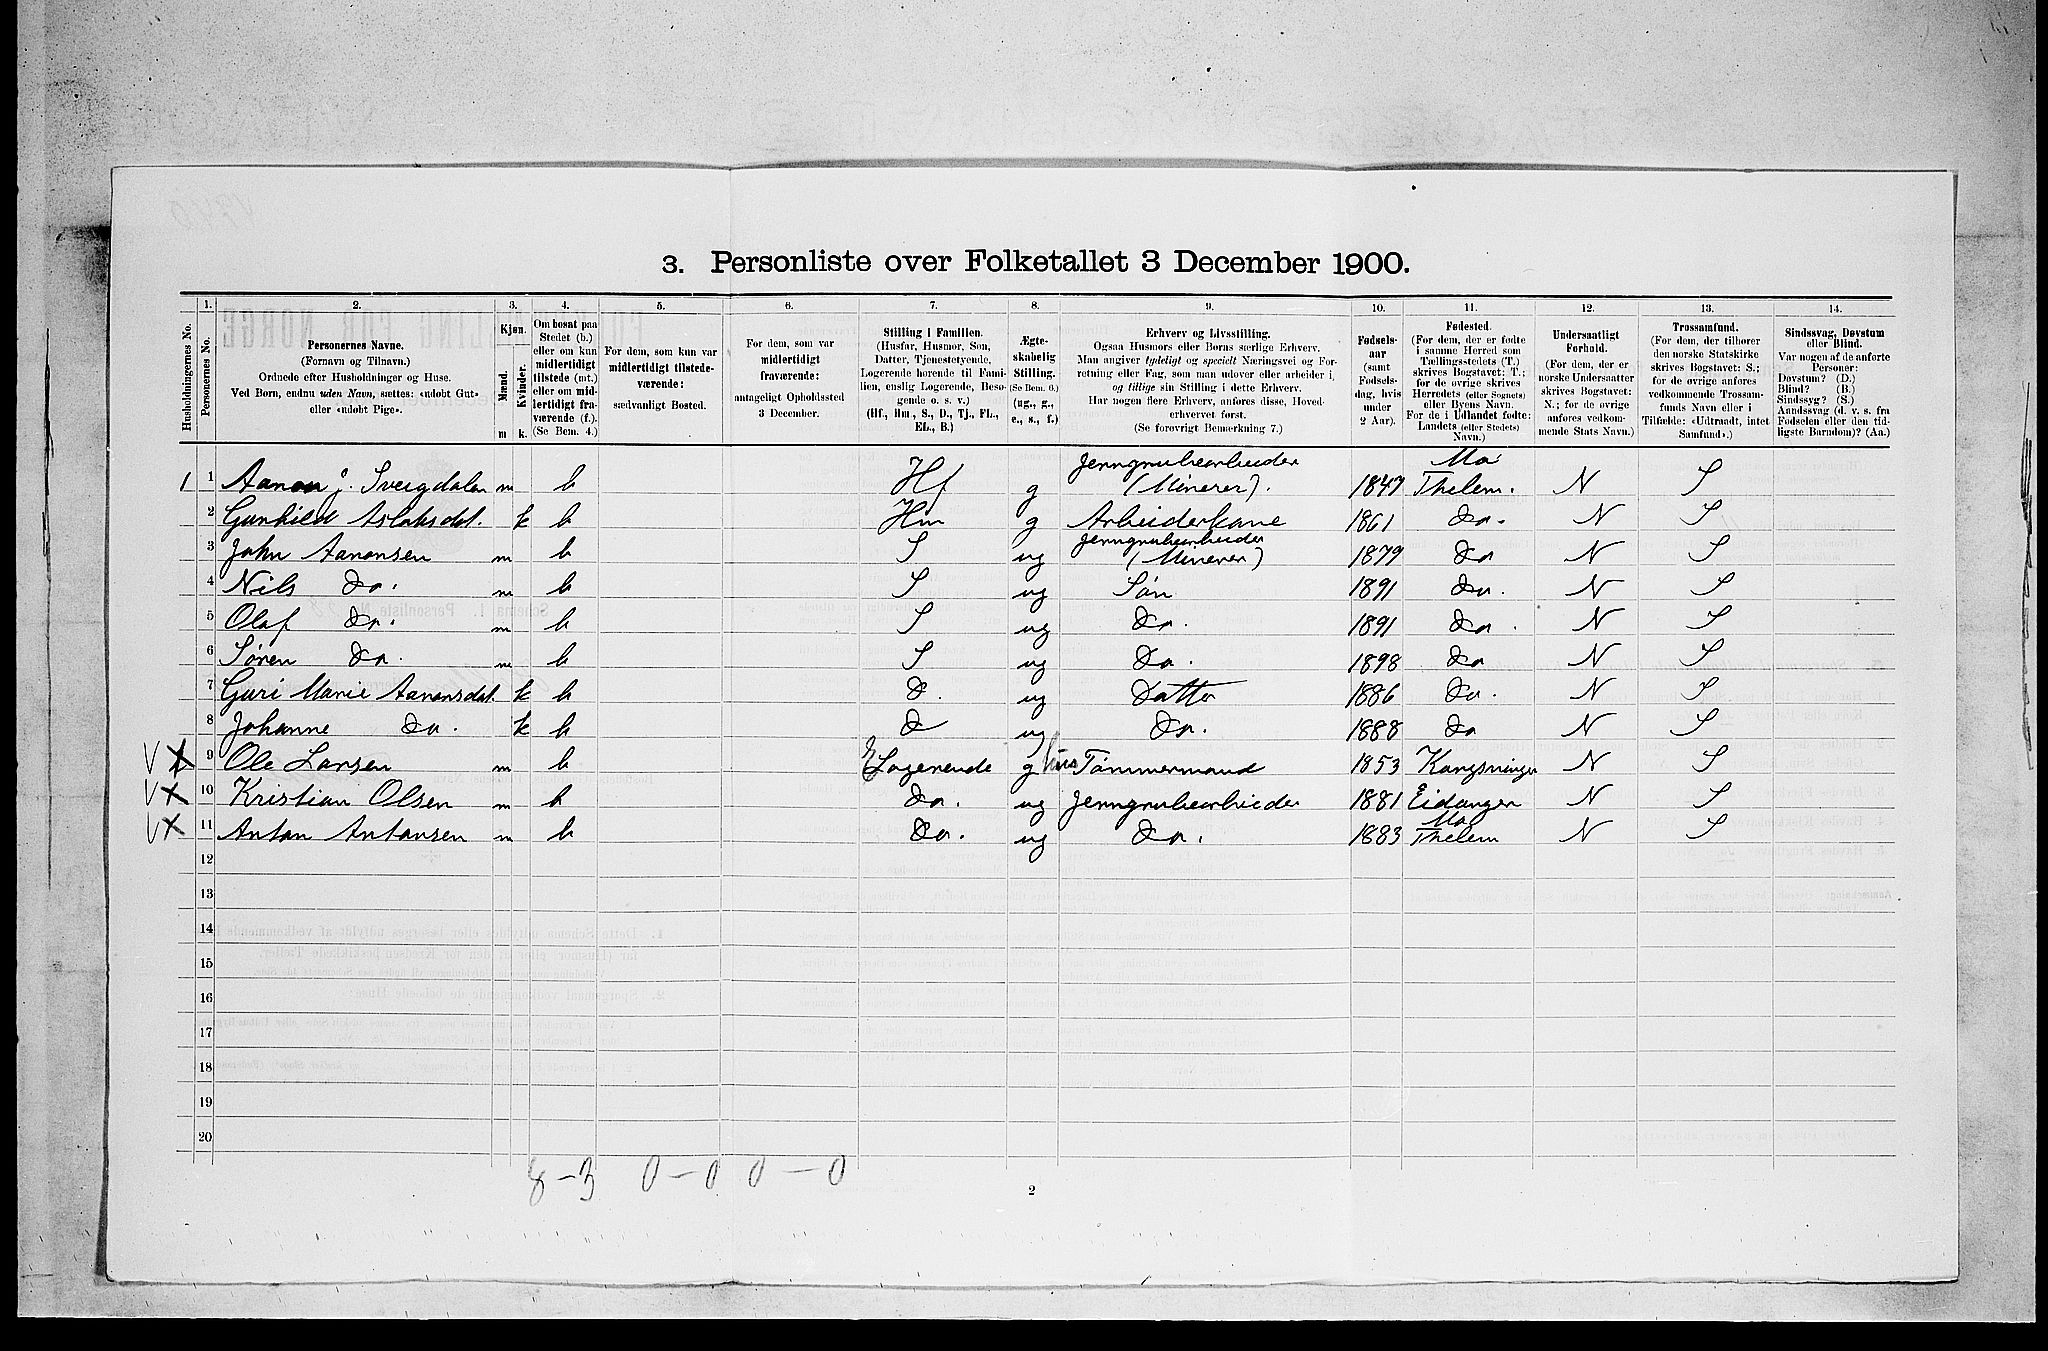 3. Personliste over Folketallet 3 December 1900.
1. 2. 3. 4. 5. 6. 7. 8. 9. 10. 11. 12. 13. 14.
Husholdningernes No.
Personernes No.
Personernes Navne.
(Fornavn og Tilnavn.)
Ordnede efter Husholdninger og Huse.
Ved Børn, endnu uden Navn, sættes: «udøbt Gut»
eller «udøbt Pige».
Kjøn.
Mænd.
Kvinder.
m k.
Om bosat paa
Stedet (b.)
eller om kun
midlertidigt
tilstede (mt.)
eller om mid-
lertidigt fra-
værende (f.).
(Se Bem. 4.)
For dem, som kun var
midlertidigt tilstede-
værende:
sædvanligt Bosted.
For dem, som var
midlertidigt
fraværende:
antageligt Opholdssted
3 December.
Stilling i Familien.
(Husfar, Husmor, Søn,
Datter, Tjenestetyende,
Logerende hørende til Fami-
lien, enslig Logerende, Besø-
gende o. s. v.)
(Hf., Hm., S., D., Tj., FL.,
EL., B.)
Ægte-
skabelig
Stilling.
(Se Bem. 6.)
(ug., g.,
e., s., f.)
Erhverv og Livsstilling.
Ogsaa Husmors eller Børns særlige Erhverv.
Man angiver tydeligt og specielt Næringsvei og For-
retning eller Fag, som man udøver eller arbeider i,
og tillige sin Stilling i dette Erhverv.
Har nogen flere Erhverv, anføres disse, Hoved-
erhvervet først.
(Se forøvrigt Bemerkning 7.)
Fødsels-
aar
(samt
Fødsels-
dag, hvis
under
2 Aar).
Fødested.
(For dem, der er fødte
i samme Herred som
Tællingsstedets (T.)
skrives Bogstavet: T.;
for de øvrige skrives
Herredets (eller Sognets)
eller Byens Navn.
For de i Udlandet fødte:
Landets (eller Stedets)
Navn.)
Undersaatligt
Forhold.
(For dem, der er
norske Undersaatter
skrives Bogstavet:
N.; for de øvrige
anføres vedkom-
mende Stats Navn.)
Trossamfund.
(For dem, der tilhører
den norske Statskirke
skrives Bogstavet: S.;
for de øvrige anføres
vedkommende Trossam-
funds Navn eller i
Tilfælde: «Udtraadt, intet
Samfund».)
Sindssvag, Døvstum
eller Blind.
Var nogen af de anførte
Personer:
Døvstum? (D.)
Blind? (B.)
Sindssyg? (S.)
Aandssvag (d. v. s. fra
Fødselen eller den tid-
ligste Barndom)? (Aa.)
1 1 Aanon J. Sveigdalen m b Hf g Jerngrubearbeider (Minerer). 1847 Mo Thelem. N S
2 Gunhild Aslaksdat. k b Hm g Arbeiderkone 1861 Do. N S
3 John Aanonsen m b S ug Jerngrubearbeider (Minerer) 1879 Do N S
4 Nils Do. m b S ug Søn 1891 Do. N S
5 Olaf Do. m b S ug Do. 1891 Do. N S
6 Søren Do. m b S ug Do. 1898 Do N S
7 Guri Marie Aanonsdat. k b D. ug Datter 1886 Do. N S
8 Johanne Do. k b D ug Do. 1888 Do N S
V X 9 Ole Larsen m b E Logerende g Tømmermand 1853 N S
V X 10 Kristian Olsen m b Do. ug Jerngrubearbeider 1881 Eidanger N S
V X 11 Anton Antonsen m b Do. ug Do. 1883 Mo Thelem N S
12
13
14
15
16
17
18
19
20
8-3 0-0 0-0
2